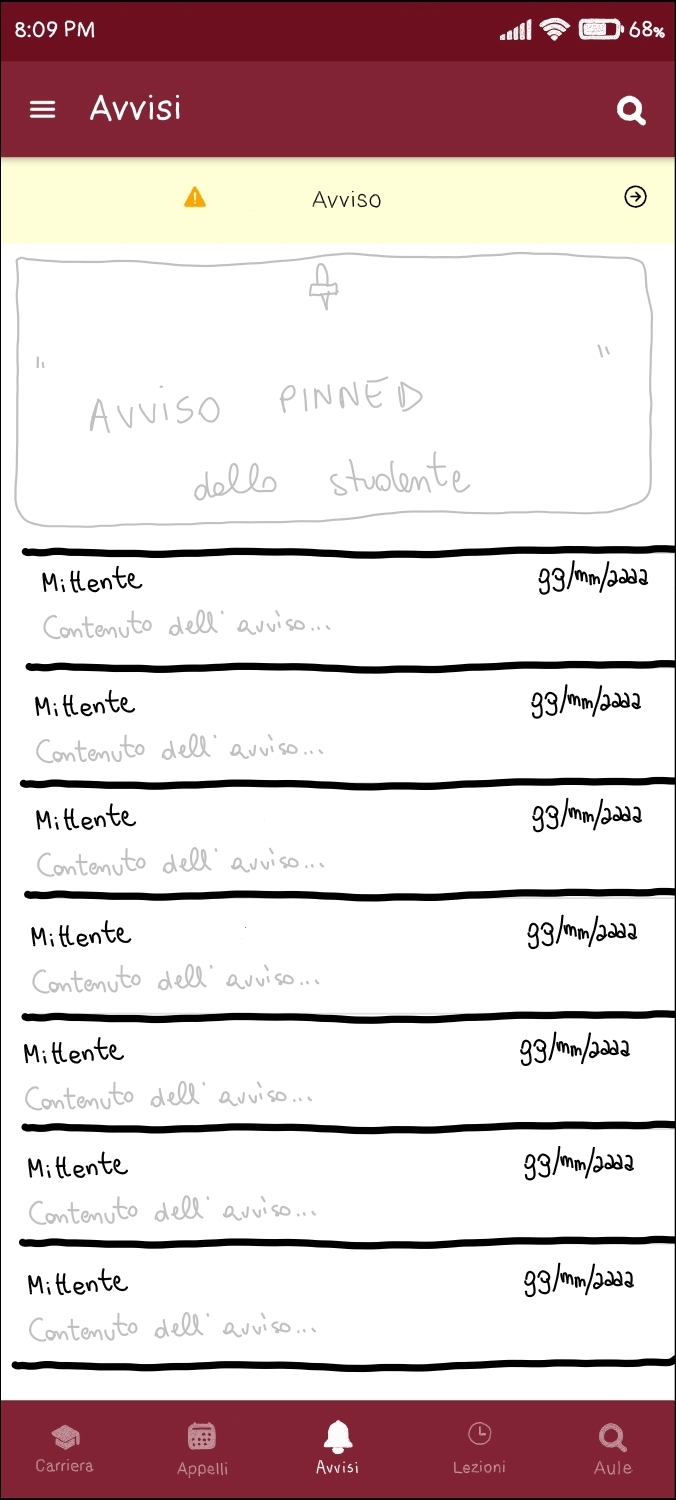 8:09 PM 68%
Avvisi
Avviso
" "
AVVISO PINNED
dello studente
Mittente gg/mm/aaaa
Contenuto dell' avviso...
Mittente gg/mm/aaaa
Contenuto dell' avviso...
Mittente gg/mm/aaaa
Contenuto dell' avviso...
Mittente gg/mm/aaaa
Contenuto dell' avviso...
Mittente gg/mm/aaaa
Contenuto dell' avviso...
Mittente gg/mm/aaaa
Contenuto dell' avviso...
Mittente gg/mm/aaaa
Contenuto dell' avviso...
Carriera Appelli Avvisi Lezioni Aule